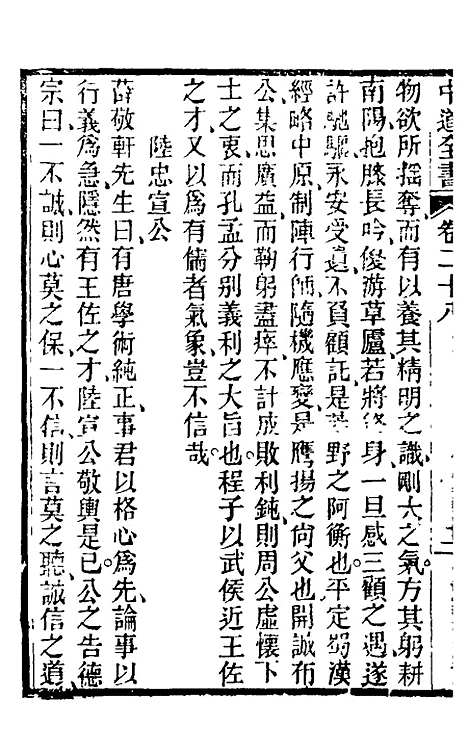 中道全書 卷二十八
物欲所搖奪而有以養其精明之識剛大之氣方其躬耕
南陽抱膝長吟優游草廬若將終身一旦感三顧之遇遂
許馳驅永安受遺不負顧託是莘野之阿衡也平定蜀漢
經略中原制陣行師隨機應變是鷹揚之尙父也開誠布
公集思廣益而鞠躬盡瘁不計成敗利鈍則周公虛懷下
士之衷而孔孟分别義利之大旨也程子以武侯近王佐
之才又以爲有儒者氣象豈不信哉
陸忠宣公
薛敬軒先生曰有唐學術純正事君以格心爲先論事以
行義爲急隱然有王佐之才陸宣公敬輿是已公之告德
宗曰一不誠則心莫之保一不信則言莫之聽誠信之道